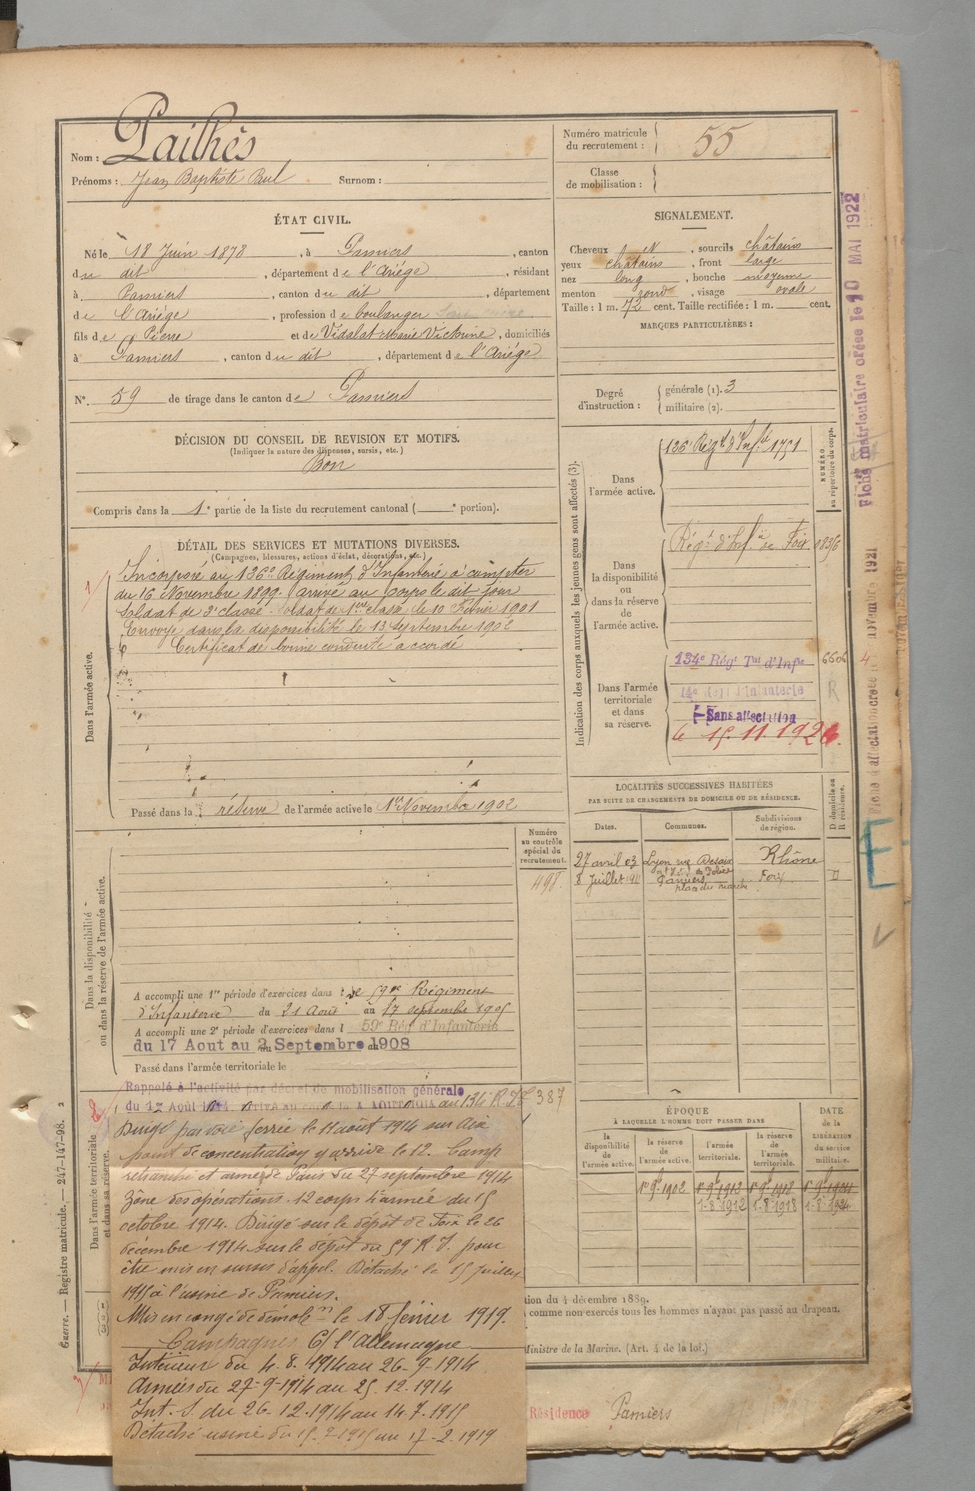 Nom : Pailhès
Prénoms : Jean Baptiste Paul Surnom :
Numéro matricule du recrutement : 55
Classe de mobilisation :
ÉTAT CIVIL.
Né le 18 Juin 1878, à Pamiers, canton
du dit, département de l'Ariège, résidant
à Pamiers, canton du dit, département
de l'Ariège, profession de boulanger
fils de Pierre et de Vidalat Marie Victorine, domiciliés
à Pamiers, canton du dit, département de l'Ariège
N°. 59 de tirage dans le canton de Pamiers
DÉCISION DU CONSEIL DE REVISION ET MOTIFS.
(Indiquer la nature des dispenses, sursis, etc.)
Bon
Compris dans la 1e partie de la liste du recrutement cantonal ( e portion).
SIGNALEMENT.
Cheveux N, sourcils châtains
yeux châtains, front large
nez long, bouche moyenne
menton rond, visage ovale
Taille : 1 m. 72 cent. Taille rectifiée : 1 m. cent.
MARQUES PARTICULIÈRES :
Degré d'instruction :
générale (1). 3
militaire (2).
DÉTAIL DES SERVICES ET MUTATIONS DIVERSES.
(Campagnes, blessures, actions d'éclat, décorations, etc.)
Dans l'armée active.
Incorporé au 136e Régiment d'Infanterie à compter
du 16 Novembre 1899. arrivé au corps le dit jour
Soldat de 2e classe. Soldat de 1ère classe le 10 Février 1901
Envoyé dans la disponibilité le 13 Septembre 1902
Certificat de bonne conduite accordé
Passé dans la réserve de l'armée active le 1er Novembre 1902
Indication des corps auxquels les jeunes gens sont affectés (3).
NUMÉRO au répertoire du corps.
Dans l'armée active.
136e Régt d'Infie 1751
Dans la disponibilité ou dans la réserve de l'armée active.
Régt d'Infie de Foix
Dans l'armée territoriale et dans sa réserve.
134e Régt Tal d'Infie 6606
14e Régt d'Infanterie R
Sans affectation
le 15.11.192
LOCALITÉS SUCCESSIVES HABITÉES
PAR SUITE DE CHANGEMENTS DE DOMICILE OU DE RÉSIDENCE.
Dates. Communes. Subdivisions de région. D domicile ou R résidence.
27 avril 03 Lyon rue Desaix Rhône
8 Juillet Pamiers Foix D
place du marché
Dans la disponibilité ou dans la réserve de l'armée active.
Numéro au contrôle spécial du recrutement.
498
A accompli une 1re période d'exercices dans le 59me Régiment
d'Infanterie du 21 Août au 17 septembre 1905
A accompli une 2e période d'exercices dans l 59e Rég d'Infanterie
du 17 Aout au 2 Septembre 1908
Passé dans l'armée territoriale le
Dans l'armée territoriale et dans sa réserve.
Rappelé à l'activité par décret de mobilisation générale
du 1er Août 1914. au 134 R.T. 387
Dirigé par voie ferrée le 11 août 1914 sur Aix
point de concentration y arrive le 12. Camp
retranché et armée de Paris du 27 septembre 1914
Zône des opérations. 12 corps d'armée du 15
octobre 1914. Dirigé sur le dépôt de Foix le 26
décembre 1914 sur le dépôt du 59 R.I. pour
être mis en sursis d'appel. Détaché le 15 juillet
1915 à l'usine de Pamiers.
Mis en congé de démobon le 18 février 1919.
Campagnes C/ l'Allemagne
Intérieur du 4.8.1914 au 26-9-1914
Armées du 27-9-1914 au 25.12.1914
Int. S. du 26.12.1914 au 14.7.1915
Détaché usine du 15-7-1915 au 17-2.1919
ÉPOQUE
À LAQUELLE L'HOMME DOIT PASSER DANS
la disponibilité de l'armée active. la réserve de l'armée active. l'armée territoriale. la réserve de l'armée territoriale.
DATE de la LIBÉRATION du service militaire.
1er 9bre 1902 1er 9bre 1912 1er 9bre 1918
1-8-1912 1-8-1918 1-8-1924
tion du 4 décembre 1889.
comme non exercés tous les hommes n'ayant pas passé au drapeau.
Ministre de la Marine. (Art. 4 de la loi.)
Résidence Pamiers
Guerre. — Registre matricule. — 247-147-98.
Fiche matriculaire créée le 10 MAI 1922